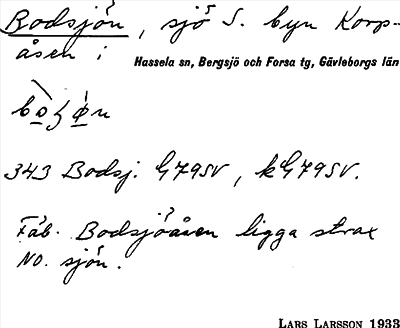 Bodsjön, sjö S. byn Korp-
åsen i Hassela sn, Bergsjö och Forsa tg, Gävleborgs län
343 Bodsj. G79SV, kG79SV.
Fäb. Bodsjöåsen ligga strax
NO. sjön.
LARS LARSSON 1933